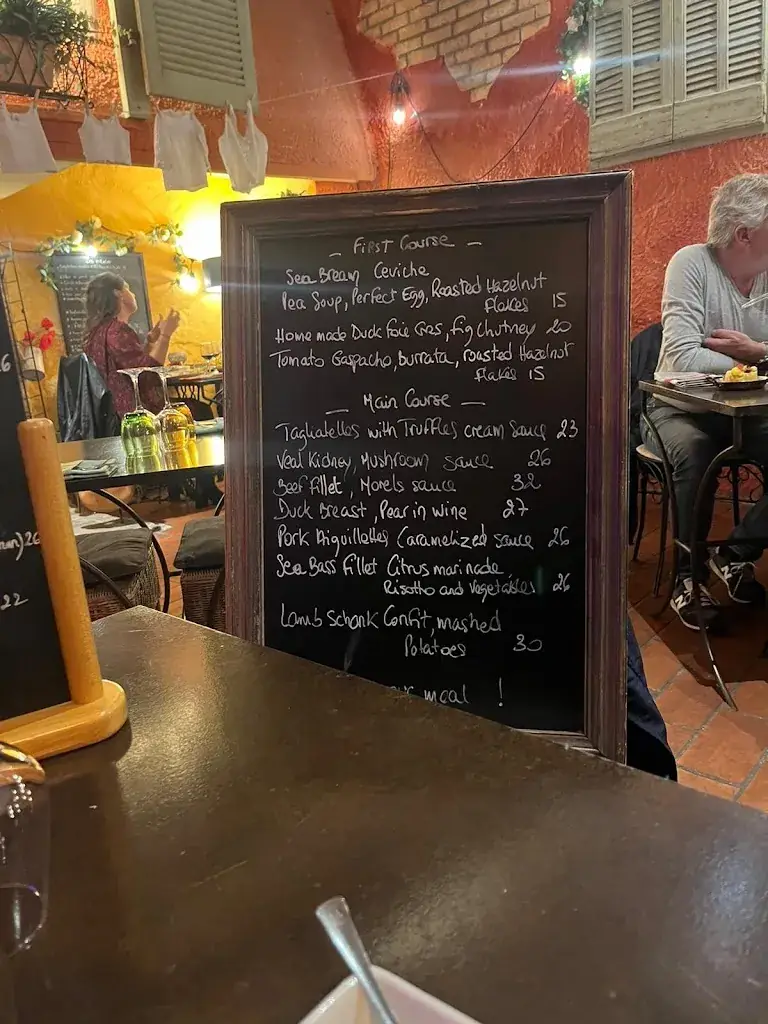 First Course
Sea Bream Ceviche
Pea Soup, Perfect Egg, Roasted Hazelnut
flakes 15
Home made Duck foie Gras, fig Chutney 20
Tomato Gaspacho, burrata, roasted Hazelnut
flakes 15
Main Course
Tagliatelles with Truffles cream sauce 23
Veal Kidney, Mushroom sauce 26
Beef fillet, Morels sauce 32
Duck Breast, Pear in wine 27
Pork Aiguillettes Caramelized sauce 26
Sea Bass fillet Citrus marinade
Risotto and Vegetables 26
Lamb Schank Confit, mashed
Potatoes 30
meal !
26
22